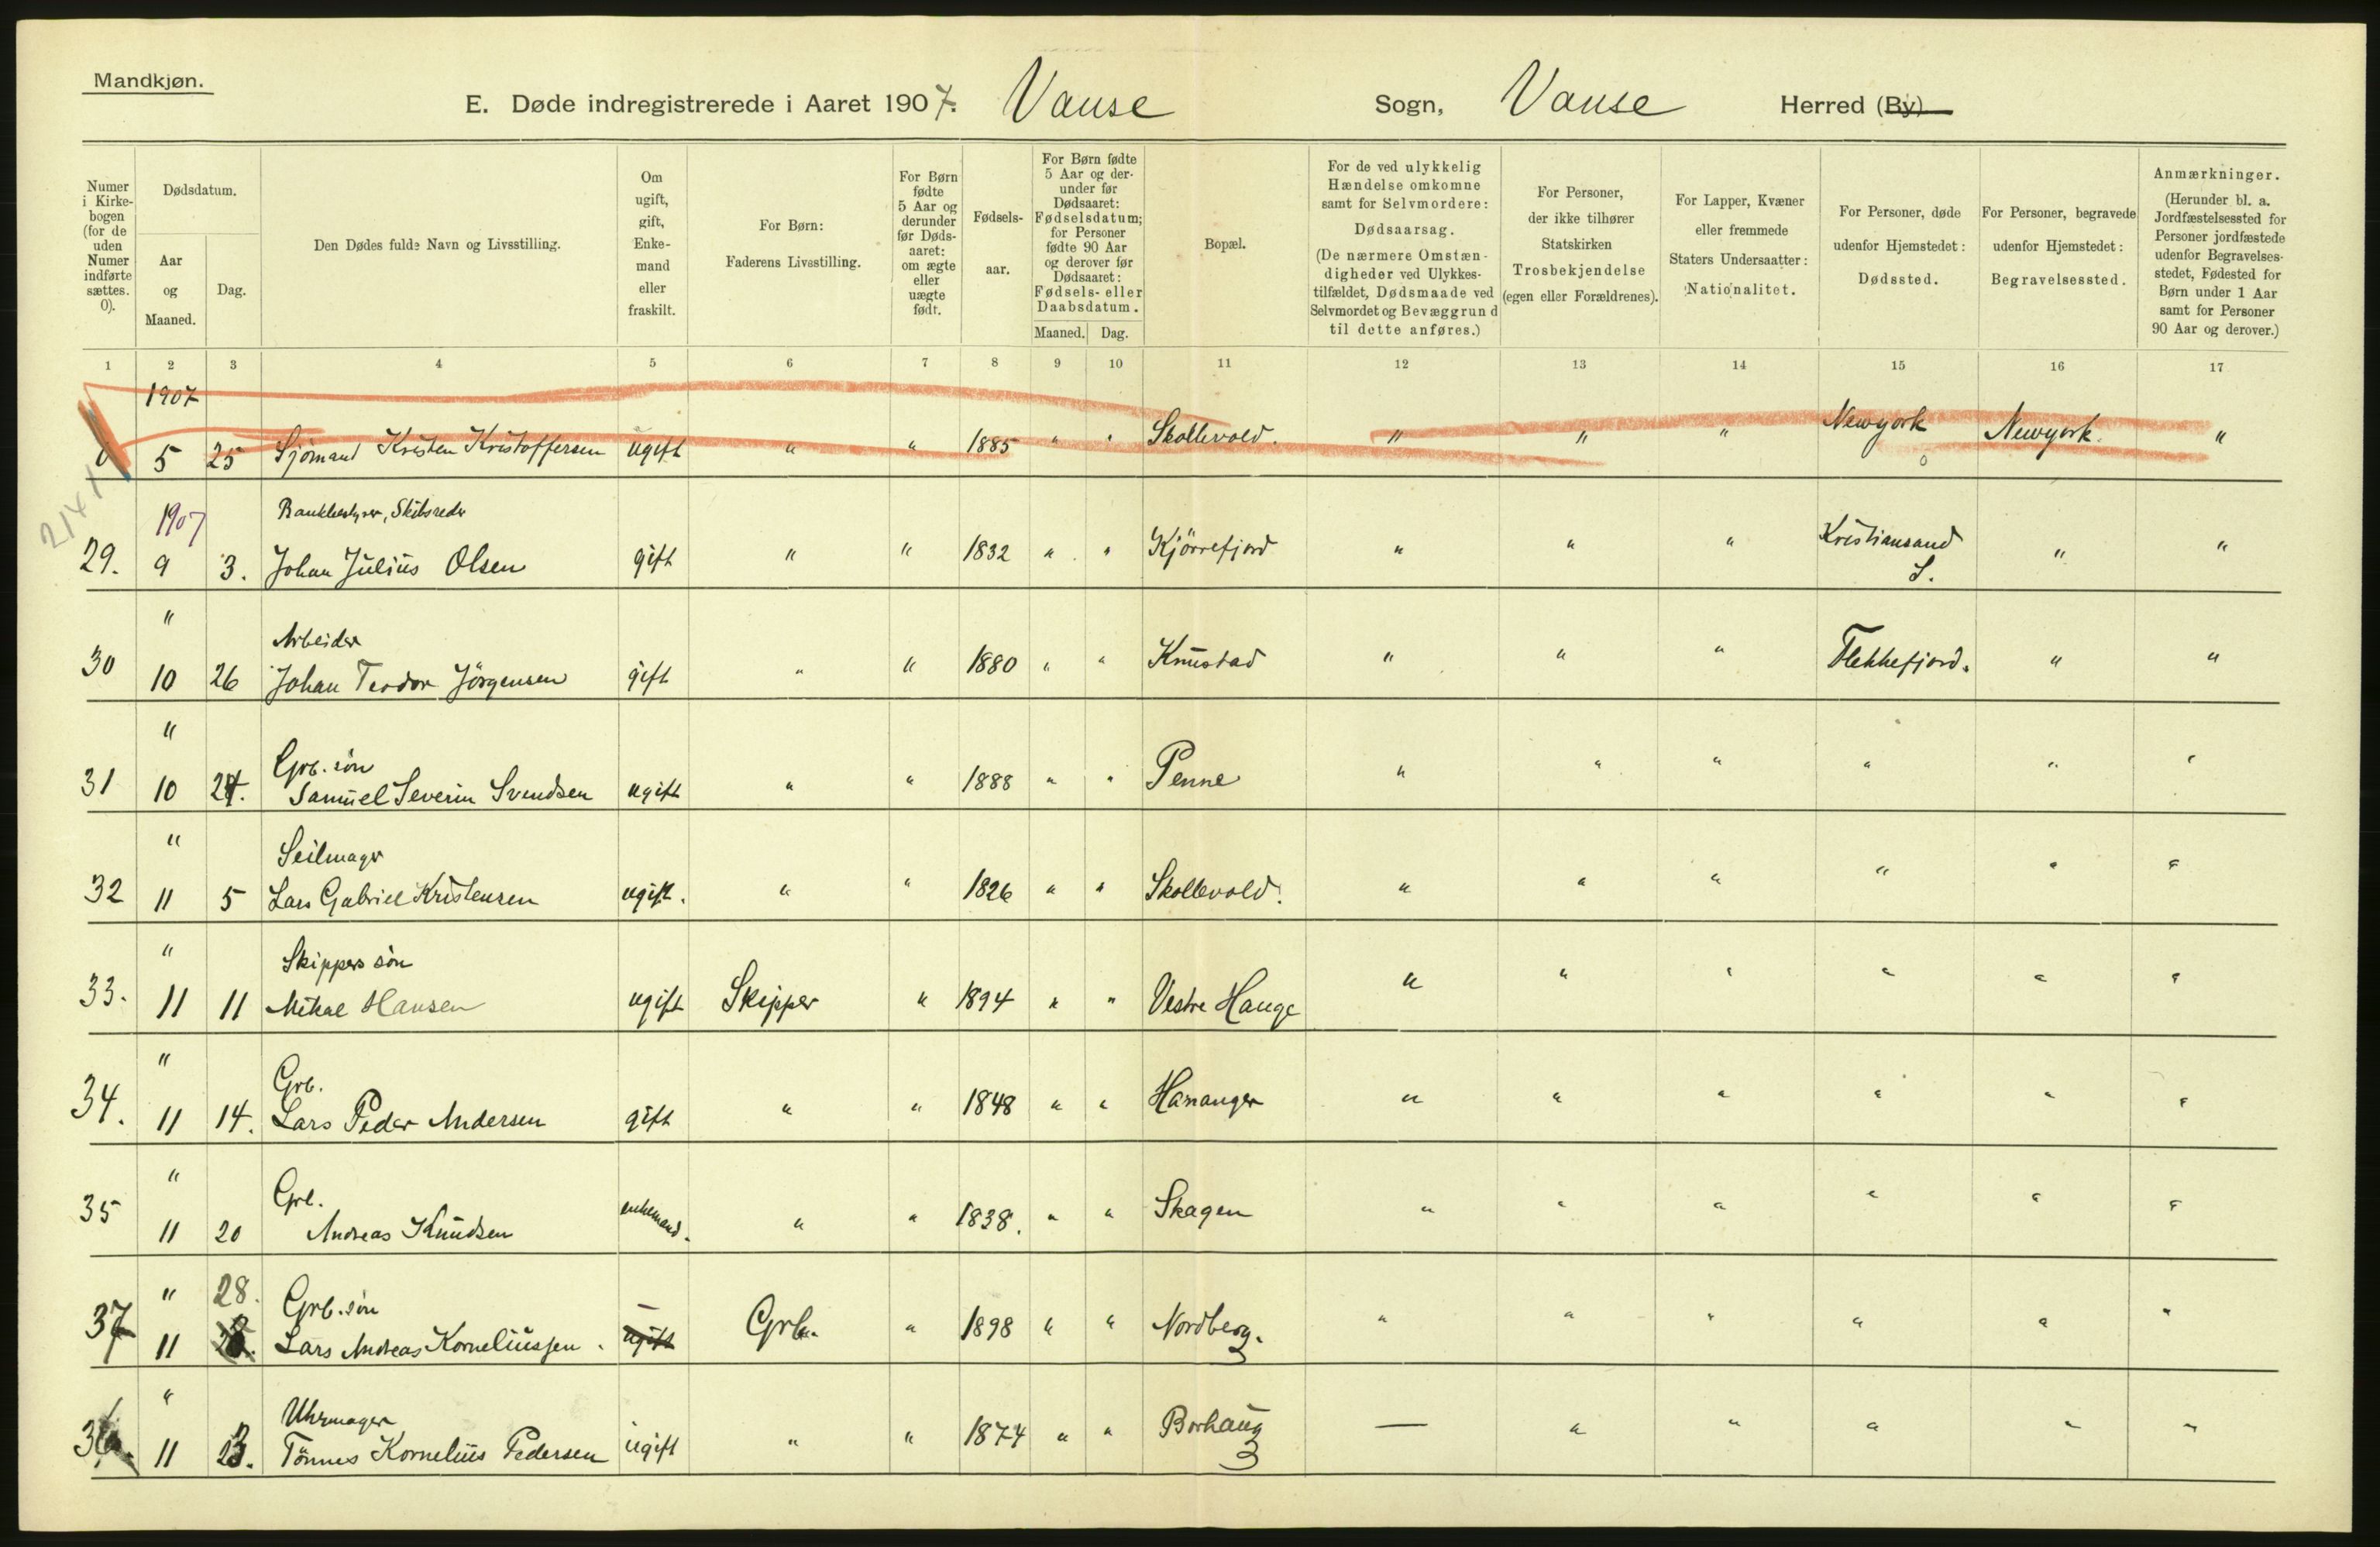 Mandkjøn.
E. Døde indregistrerede i Aaret 1907. Vanse Sogn, Vanse Herred (By)
Numer i Kirke-bogen (for de uden Numer indførte sættes. 0).
Dødsdatum.
Aar og Maaned.
Dag.
Den Dødes fulde Navn og Livsstilling.
Om ugift, gift, Enke-mand eller fraskilt.
For Børn: Faderens Livsstilling.
For Børn fødte 5 Aar og derunder før Døds-aaret: om ægte eller uægte født.
Fødsels-aar.
For Børn fødte 5 Aar og der-under før Dødsaaret: Fødselsdatum; for Personer fødte 90 Aar og derover før Dødsaaret: Fødsels- eller Daabsdatum.
Maaned. Dag.
Bopæl.
For de ved ulykkelig Hændelse omkomne samt for Selvmordere: Dødsaarsag. (De nærmere Omstæn-digheder ved Ulykkes-tilfældet, Dødsmaade ved Selvmordet og Bevæggrund til dette anføres.)
For Personer, der ikke tilhører Statskirken Trosbekjendelse (egen eller Forældrenes).
For Lapper, Kvæner eller fremmede Staters Undersaatter: Nationalitet.
For Personer, døde udenfor Hjemstedet: Dødssted.
For Personer, begravede udenfor Hjemstedet: Begravelsessted.
Anmærkninger. (Herunder bl. a. Jordfæstelsessted for Personer jordfæstede udenfor Begravelses-stedet, Fødested for Børn under 1 Aar samt for Personer 90 Aar og derover.)
1 2 3 4 5 6 7 8 9 10 11 12 13 14 15 16 17
1907
0 5 25 Sjömand Kristen Kristoffersen ugift " " 1885 " " Skollevold. " " " Newyork Newyork. "
2141
1907 Bankbestyrer, Skibsreder
29. 9 3. Johan Julius Olsen gift " " 1832 " " Kjörrefjord " " " Kristiansand S. " "
" Arbeider
30 10 26 Johan Teodor Jörgensen gift " " 1880 " " Knustad " " " Flekkefjord. " "
" Grb. sön
31 10 24. Samuel Severin Svendsen ugift " " 1888 " " Penne " " " " " "
" Seilmager
32 11 5 Lars Gabriel Kristensen ugift. " " 1826 " " Skollevold. " " " " " "
" Skippers sön
33. 11 11 Mikal Hansen ugift Skipper " 1894 " " Vestre Hauge " " " " " "
" Grb.
34. 11 14. Lars Peder Andersen gift " " 1848 " " Hananger " " " " " "
" Grb.
35 11 20 Andreas Knudsen enkemand. " " 1838. " " Skagen " " " " " "
" 28. Grb. sön
37 11 Lars Andreas Korneliussen. ugift Grb. " 1898 " " Nordberg. " " " " " "
" Uhrmager
36. 11 23. Tönnes Kornelius Pedersen ugift " " 1874 " " Borhaug — " " " " "